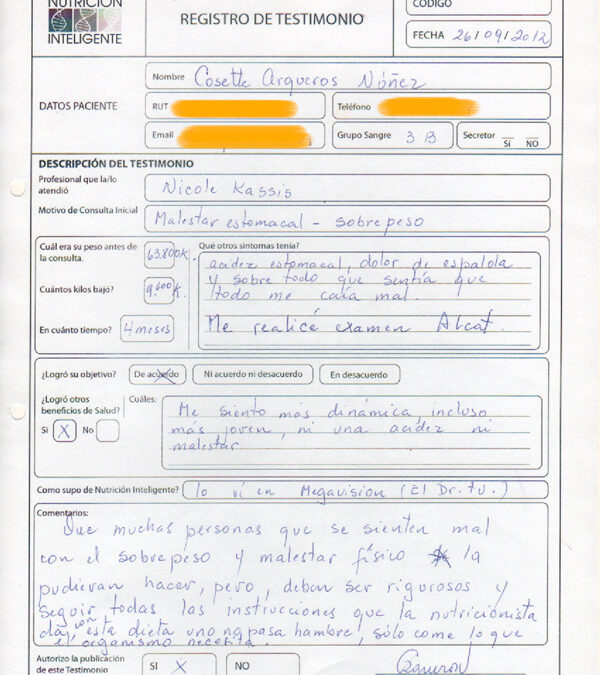 NUTRICIÓN
INTELIGENTE
REGISTRO DE TESTIMONIO
CÓDIGO
FECHA 26/09/2012
DATOS PACIENTE
Nombre Cosette Arqueros Núñez
RUT
Teléfono
Email
Grupo Sangre 3 B
Secretor SÍ NO
DESCRIPCIÓN DEL TESTIMONIO
Profesional que la/lo atendió Nicole Kassis
Motivo de Consulta Inicial Malestar estomacal - sobrepeso
Cuál era su peso antes de la consulta. 63.800K.
Cuántos kilos bajo? 9.600K.
En cuánto tiempo? 4 meses
Qué otros sintomas tenía?
acidez estomacal, dolor de espalola
y sobre todo que sentía que
todo me caía mal.
Me realicé examen Alcat.
¿Logró su objetivo? De acuerdo Ni acuerdo ni desacuerdo En desacuerdo
¿Logró otros beneficios de Salud? Si X No
Cuáles:
Me siento más dinámica, incluso
más joven, ni una acidez ni
malestar
Como supo de Nutrición Inteligente? lo ví en Megavisión (El Dr. tv.)
Comentarios:
Que muchas personas que se sienten mal
con el sobrepeso y malestar físico la
pudieran hacer, pero, deban ser rigurosos y
seguir todas las instrucciones que la nutricionista
da, con esta dieta uno no pasa hambre, sólo come lo que
el organismo necesita.
Autorizo la publicación de este Testimonio SI X NO